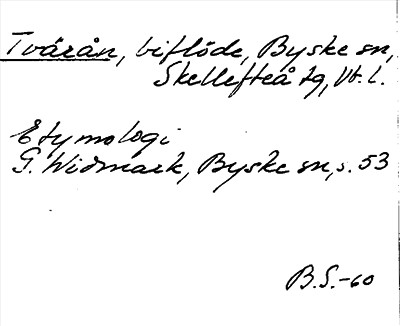 Tvärån, biflöde, Byske sn,
Skellefteå tg, Vb. l.
Etymologi
G. Widmark, Byske sn, s. 53
B.S.-60